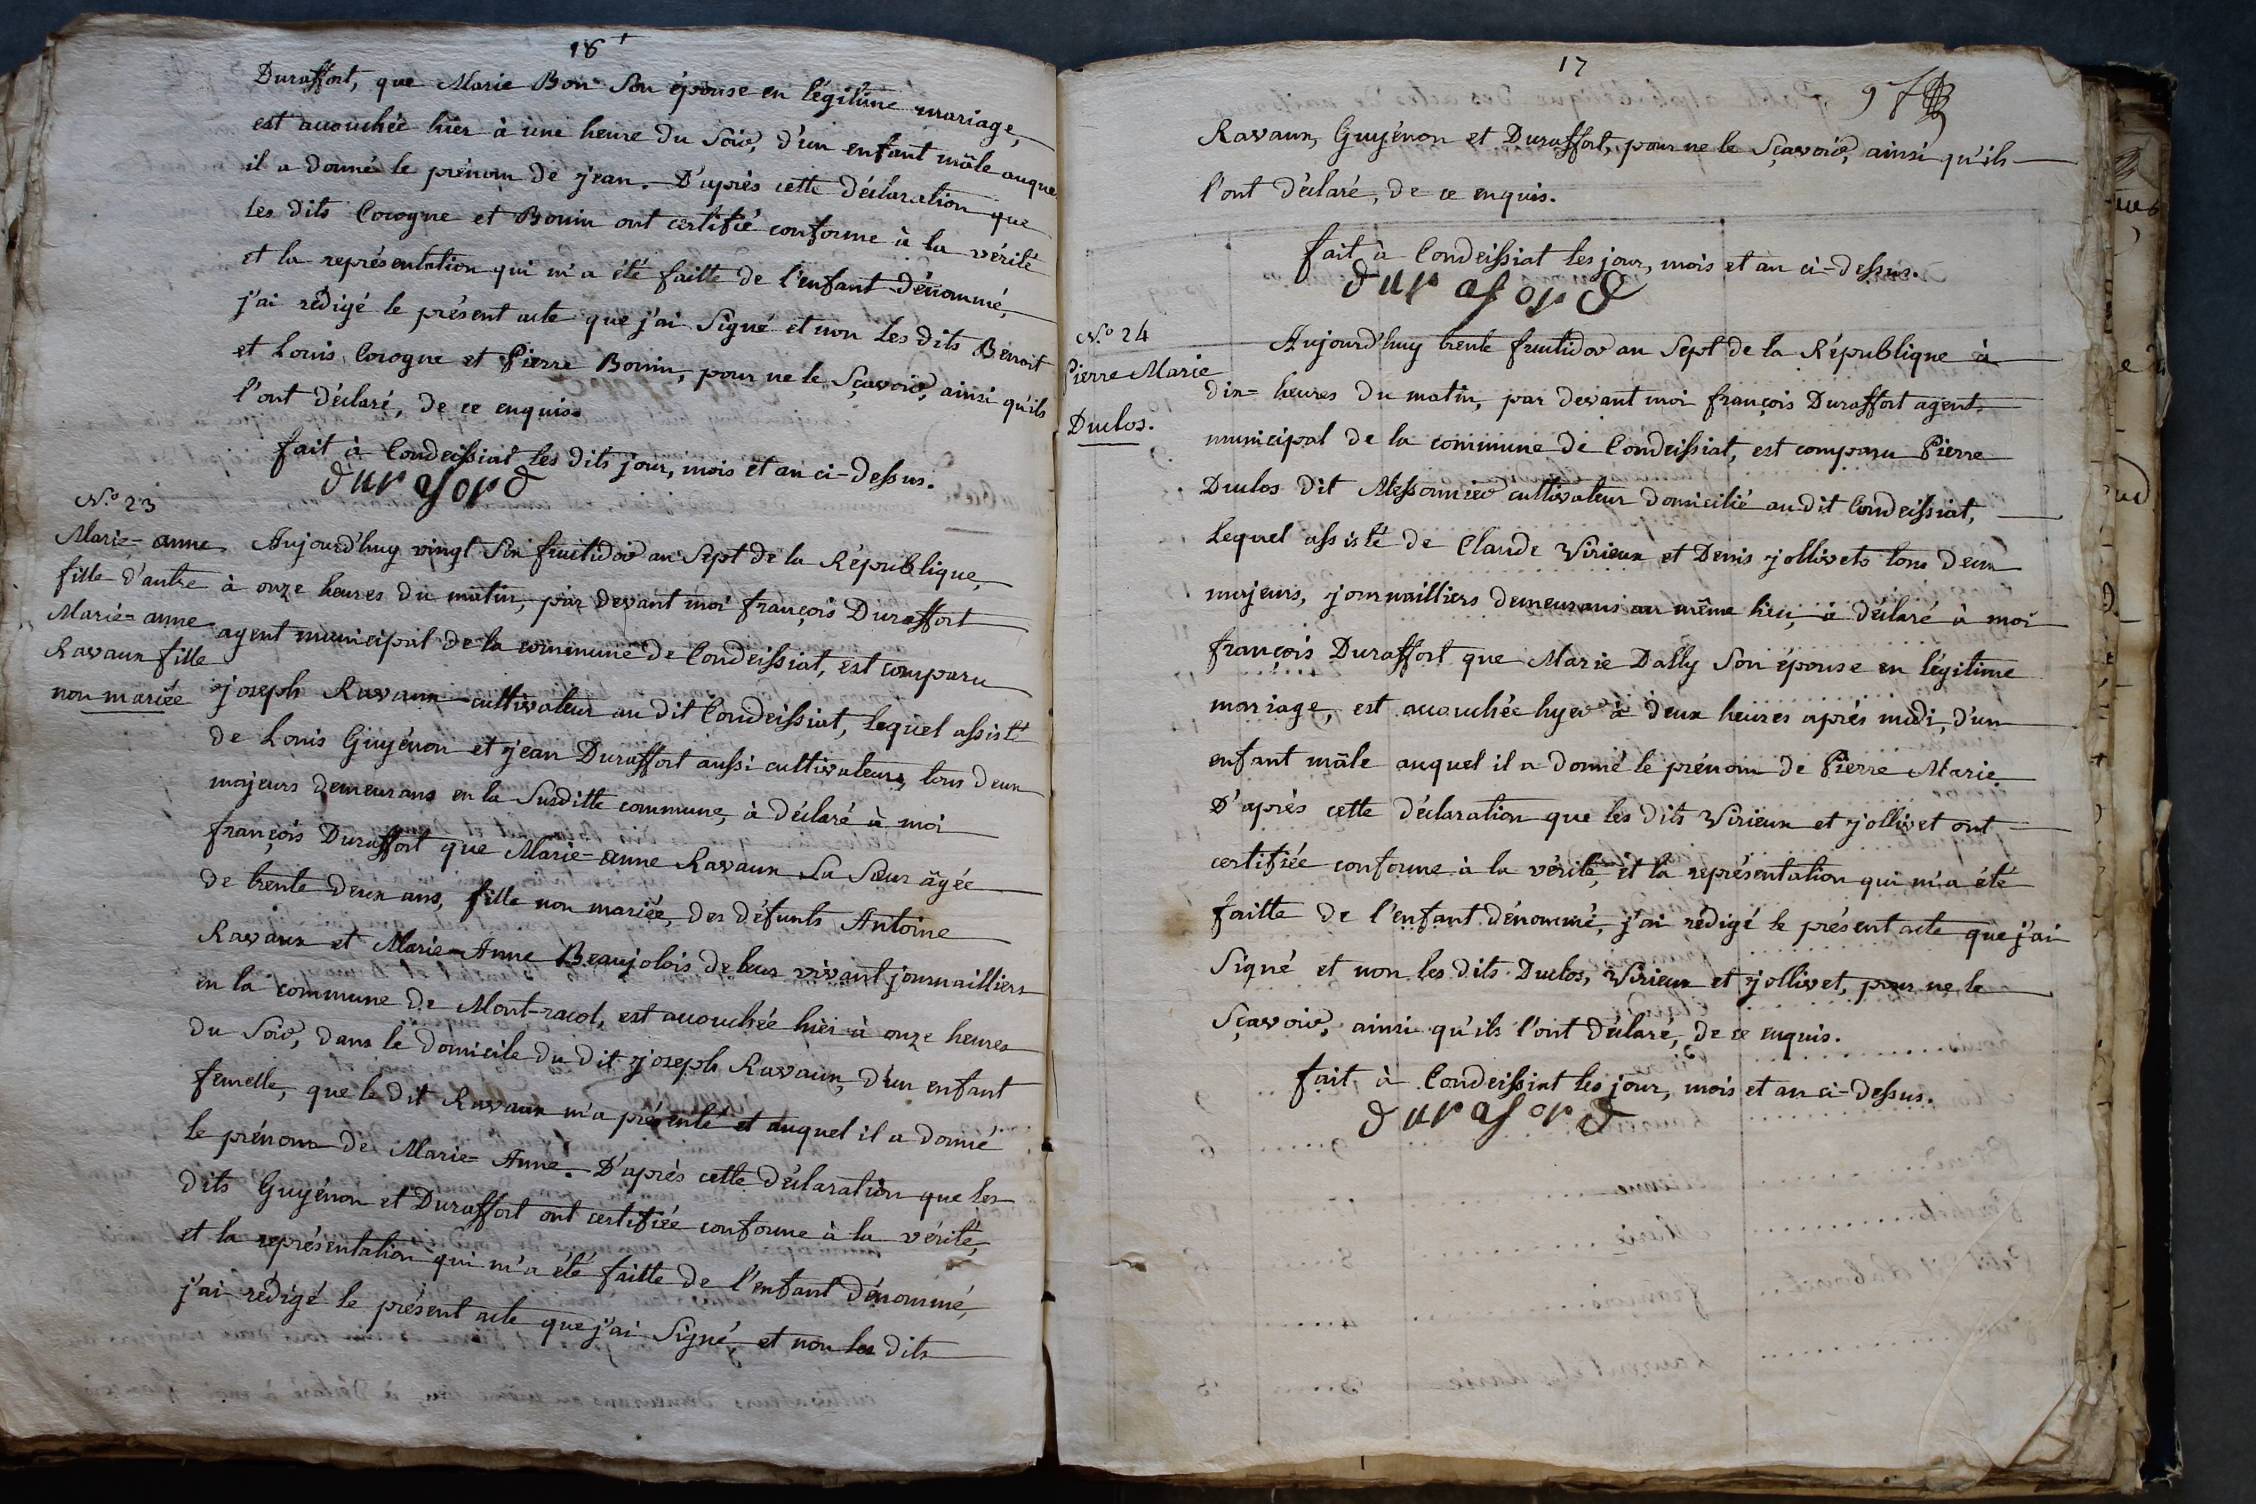 16
Duraffort, que Marie Bon Son épouse en légitime mariage,
est accouchée hier à une heure du Soir, d'un enfant mâle auque
il a donné le prénom de jean. D'après cette déclaration que
les dits Cocogne et Bouin ont certifié conforme à la vérité
et la représentation qui m'a été faitte de l'enfant dénommé,
j'ai redigé le présent acte que j'ai Signé et non les dits Benoit
et Louis Cocogne et Pierre Bouin, pour ne le Sçavoir, ainsi qu'ils
l'ont déclaré, de ce enquis.
fait à Condeissiat les dits jour, mois et an ci-dessus.
duraford
N.o 23
Marie-anne
fille d'autre
Marie-anne
Ravaux fille
non mariée
Aujourd'huy vingt Six fructidor an Sept de la République,
à onze heures du matin, par devant moi françois Duraffort
agent municipal de la commune de Condeissiat, est comparu
joseph Ravaux cultivateur au dit Condeissiat, lequel assisté
de Louis Guyénon et jean Duraffort aussi cultivateurs, tous deux
majeurs demeurans en la Susditte commune, à déclaré à moi
françois Duraffort que Marie-anne Ravaux Sa Sœur âgée
de trente deux ans, fille non mariée, des défunts Antoine
Ravaux et Marie-Anne Beaujolois de leur vivant journailliers
en la commune de Mont-racol, est accouchée hier à onze heures
du Soir, dans le domicile du dit joseph Ravaux, d'un enfant
femelle, que le dit Ravaux m'a présenté et auquel il a donné
le prénom de Marie-Anne. D'après cette déclaration que les
dits Guyénon et Duraffort ont certifiée conforme à la vérité,
et la représentation qui m'a été faitte de l'enfant dénommé,
j'ai rédigé le présent acte que j'ai Signé, et non les dits
17
97
Ravaux, Guyénon et Duraffort, pour ne le Sçavoir, ainsi qu'ils
l'ont déclaré, de ce enquis.
fait à Condeissiat les jour, mois et an ci-dessus.
duraford
N.o 24
Pierre Marie
Duclos.
Aujourd'huy trente fructidor an Sept de la République à
dix heures du matin, par devant moi françois Duraffort agent
municipal de la commune de Condeissiat, est comparu Pierre
Duclos dit Messonnier cultivateur domicilié au dit Condeissiat,
Lequel assisté de Claude Virieux et Denis jollivets tous deux
majeurs, journailliers demeurans au même lieu, à déclaré à moi
françois Duraffort que Marie Dally Son épouse en légitime
mariage, est accouchée hyer à deux heures après midi, d'un
enfant mâle auquel il a donné le prénom de Pierre Marie
D'après cette déclaration que les dits Virieux et jollivet ont
certifiée conforme à la vérité, et la représentation qui m'a été
faitte de l'enfant dénommé, j'ai rédigé le présent acte que j'ai
Signé et non les dits Duclos, Virieux et jollivet, pour ne le
Sçavoir, ainsi qu'ils l'ont déclaré, de ce enquis.
fait à Condeissiat les jour, mois et an ci-dessus.
duraford